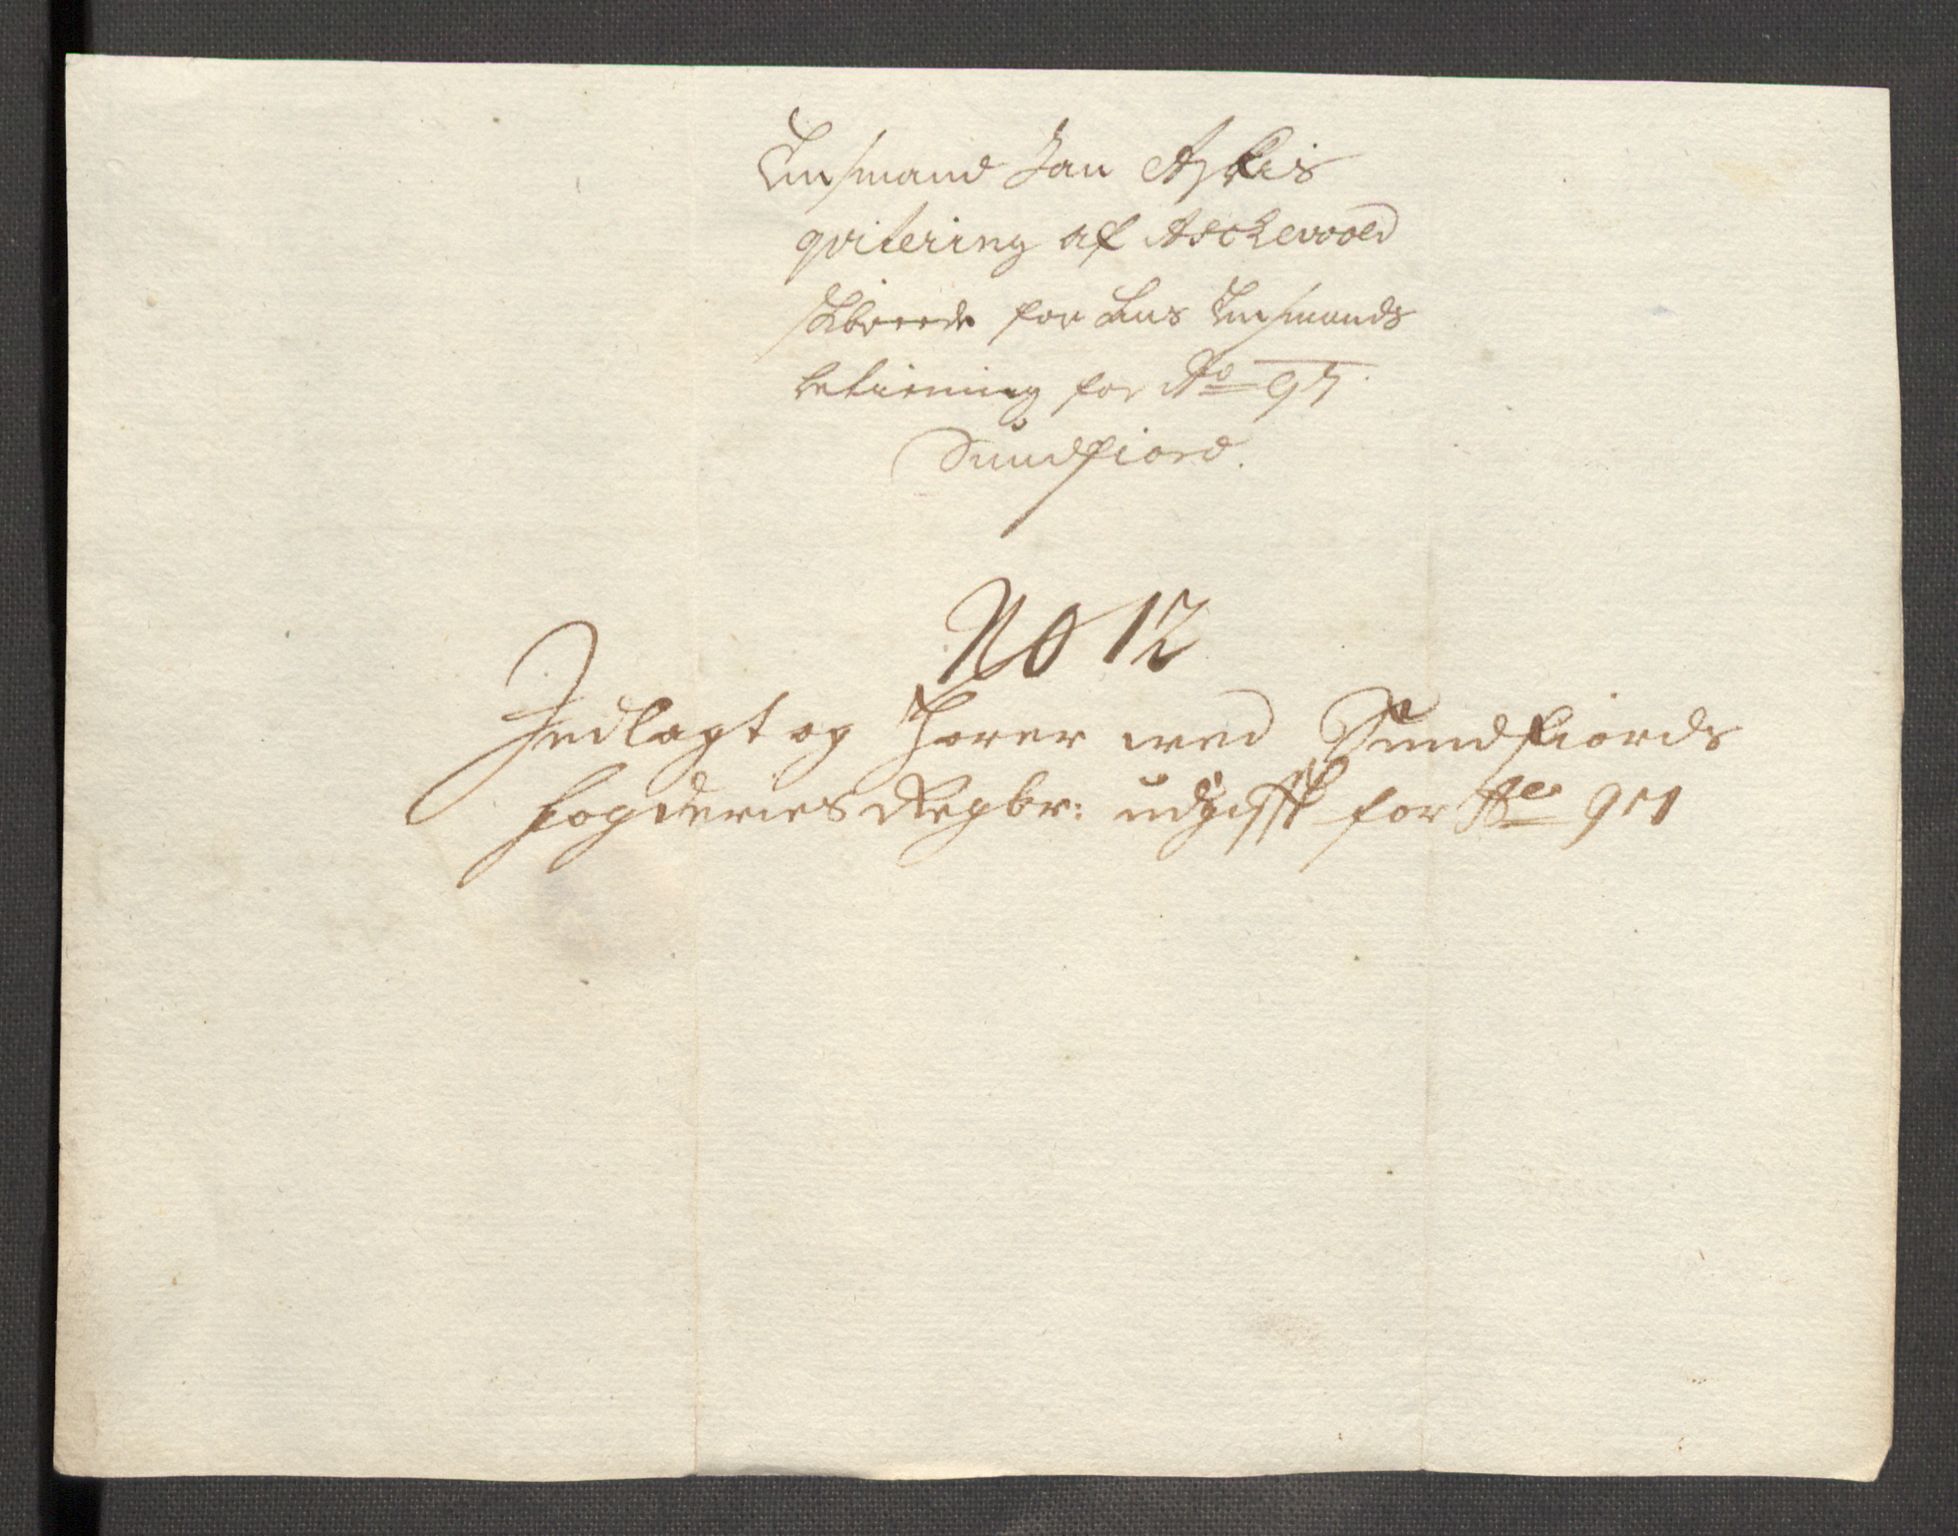 Lensmand Jan Askis
qvitering af Aschevoold
skibrede for hans Lensmands
betiening for Ao 97
Sundfiord.
No 12
Indlagt og hører wed Sundfiords
fogderies Regbr: udgifft for Ao 97